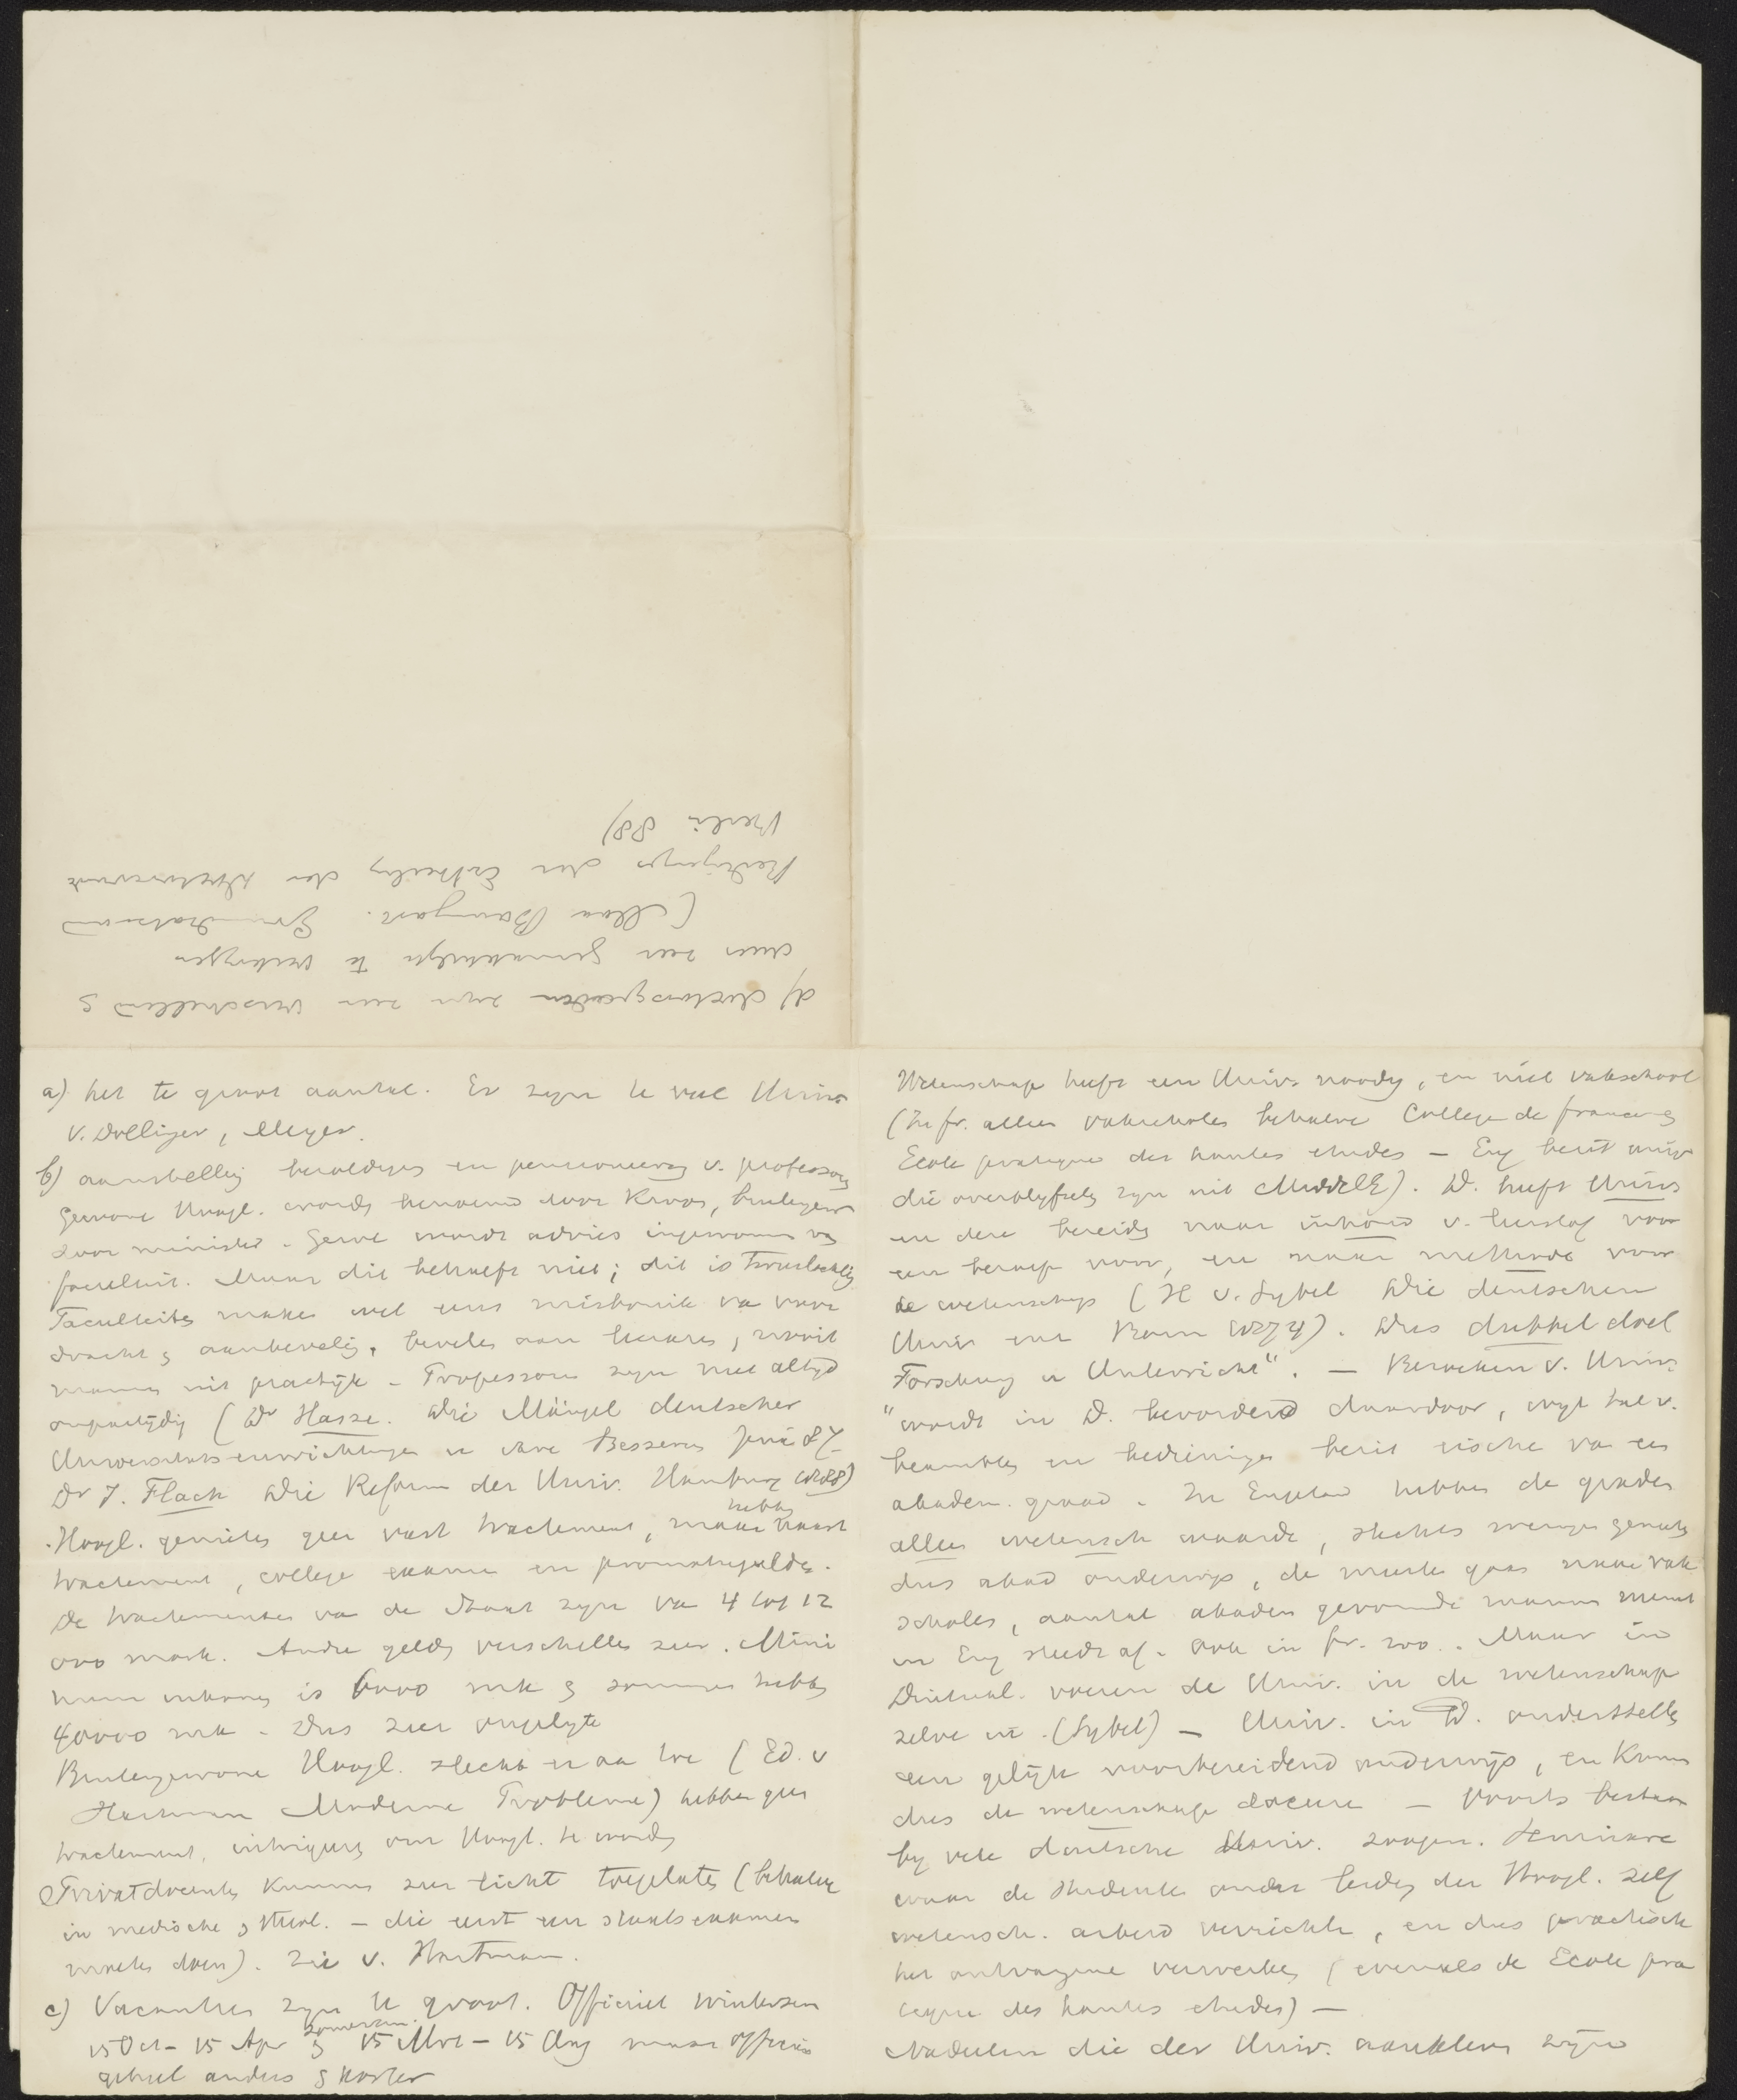 Wetenschap heeft een Univ. noodig, en niet vakschool
(In fr. alleen vakscholen behalve College de france &
Ecole pratique des hautes etudes — Eng bezit univ
die overblyfsels zyn uit MiddelE). D. heeft Univs
en deze bereidt naar inhoud v.
een beroep voor, en naar methode voor
de wetenschap (H v. Sybel Die deutschen
Univ. Bonn 1874). Dus dubbel doel
Forschung u Unterricht". — Bezoeken v. Univ.
"wordt in D. bevorderd daardoor, wyl tal v.
beambten en bedieningen bezit eischen van een
akadem. graad. In Engeland hebben de graden
alleen wetensch waarde, slechts weinigen genieten
dus akad onderwijs, de meeste gaan naar vak
scholen, aantal akadem gevormde mannen neemt
in Eng steeds af. Ook in fr. zoo. Maar in
Duitschl. voeren de Univ. in de wetenschap
zelve in. (Sybel) — Univ. in D. onderstellen
een gelijk voorbereidend onderwijs, en kunnen
dus de wetenschap doceren — Voorts bestaan
by vele deutsche Univ. zoogen. Seminare
waar de studenten onder leiding der Hoogl. zelf
wetensch. arbeid verrichten, en dus practisch
het ontvangene verwerken (evenals de Ecole pra
tique des hautes etudes) —
Nadeelen die der Univ. aankleven zijn
a) het te groot aantal. Er zyn te veel Univs.
V. Dollinger, Meyer.
b) aanstelling bezoldiging en pensioneering v. professoren
Gewone Hoogl. worden benoemd door Kroon, buitengew
door minister. Gewl wordt advies ingewonnen van
faculteit. Maar dit behoeft niet; dit is
Faculteiten maken wel eens misbruik van voor
dracht & aanbeveling, bevelen aan leeraren, nooit
mannen uit practijk — Professoren zyn niet altyd
onpartijdig (Dr Hasse. Die Mängel deutscher
Universitätseinrichtungen u ihre Besserung Jena 87.
Dr J. Flach Die Reform der Univ. Hamburg 1888)
Hoogl. genieten geen vast tractement, maar hebben naast
tractement, college examen en promotiegelden.
De tractementen van de Staat zyn van 4 tot 12
000 mark. Andre gelden verschillen zeer. Mini
mum inkomen is 6000 mk & sommige hebben
40000 mk — Dus zeer ongelyk
Buitengewone Hoogl. slecht er aan toe (Ed. v
Hartmann Moderne Probleme) hebben geen
tractement, intrigeeren om Hoogl. te worden
Privatdocenten kunnen zeer licht toegelaten (behalve
in medische & theol. — die eerst een staatsexamen
moeten doen). Zie v. Hartman.
c) Vacanties zyn te groot. Officieel wintersem
15 Oct — 15 Apr & zomersem. 15 Mrt — 15 Aug maar officieus
geheel anders & korter
d) doctorsgraden zyn zeer verschillend &
zeer gemakkelyk te verkrygen
(Max Baumgart. Grundsätze und
Bedingungen der Ertheilung der Doctorwürde
Berlin 88)